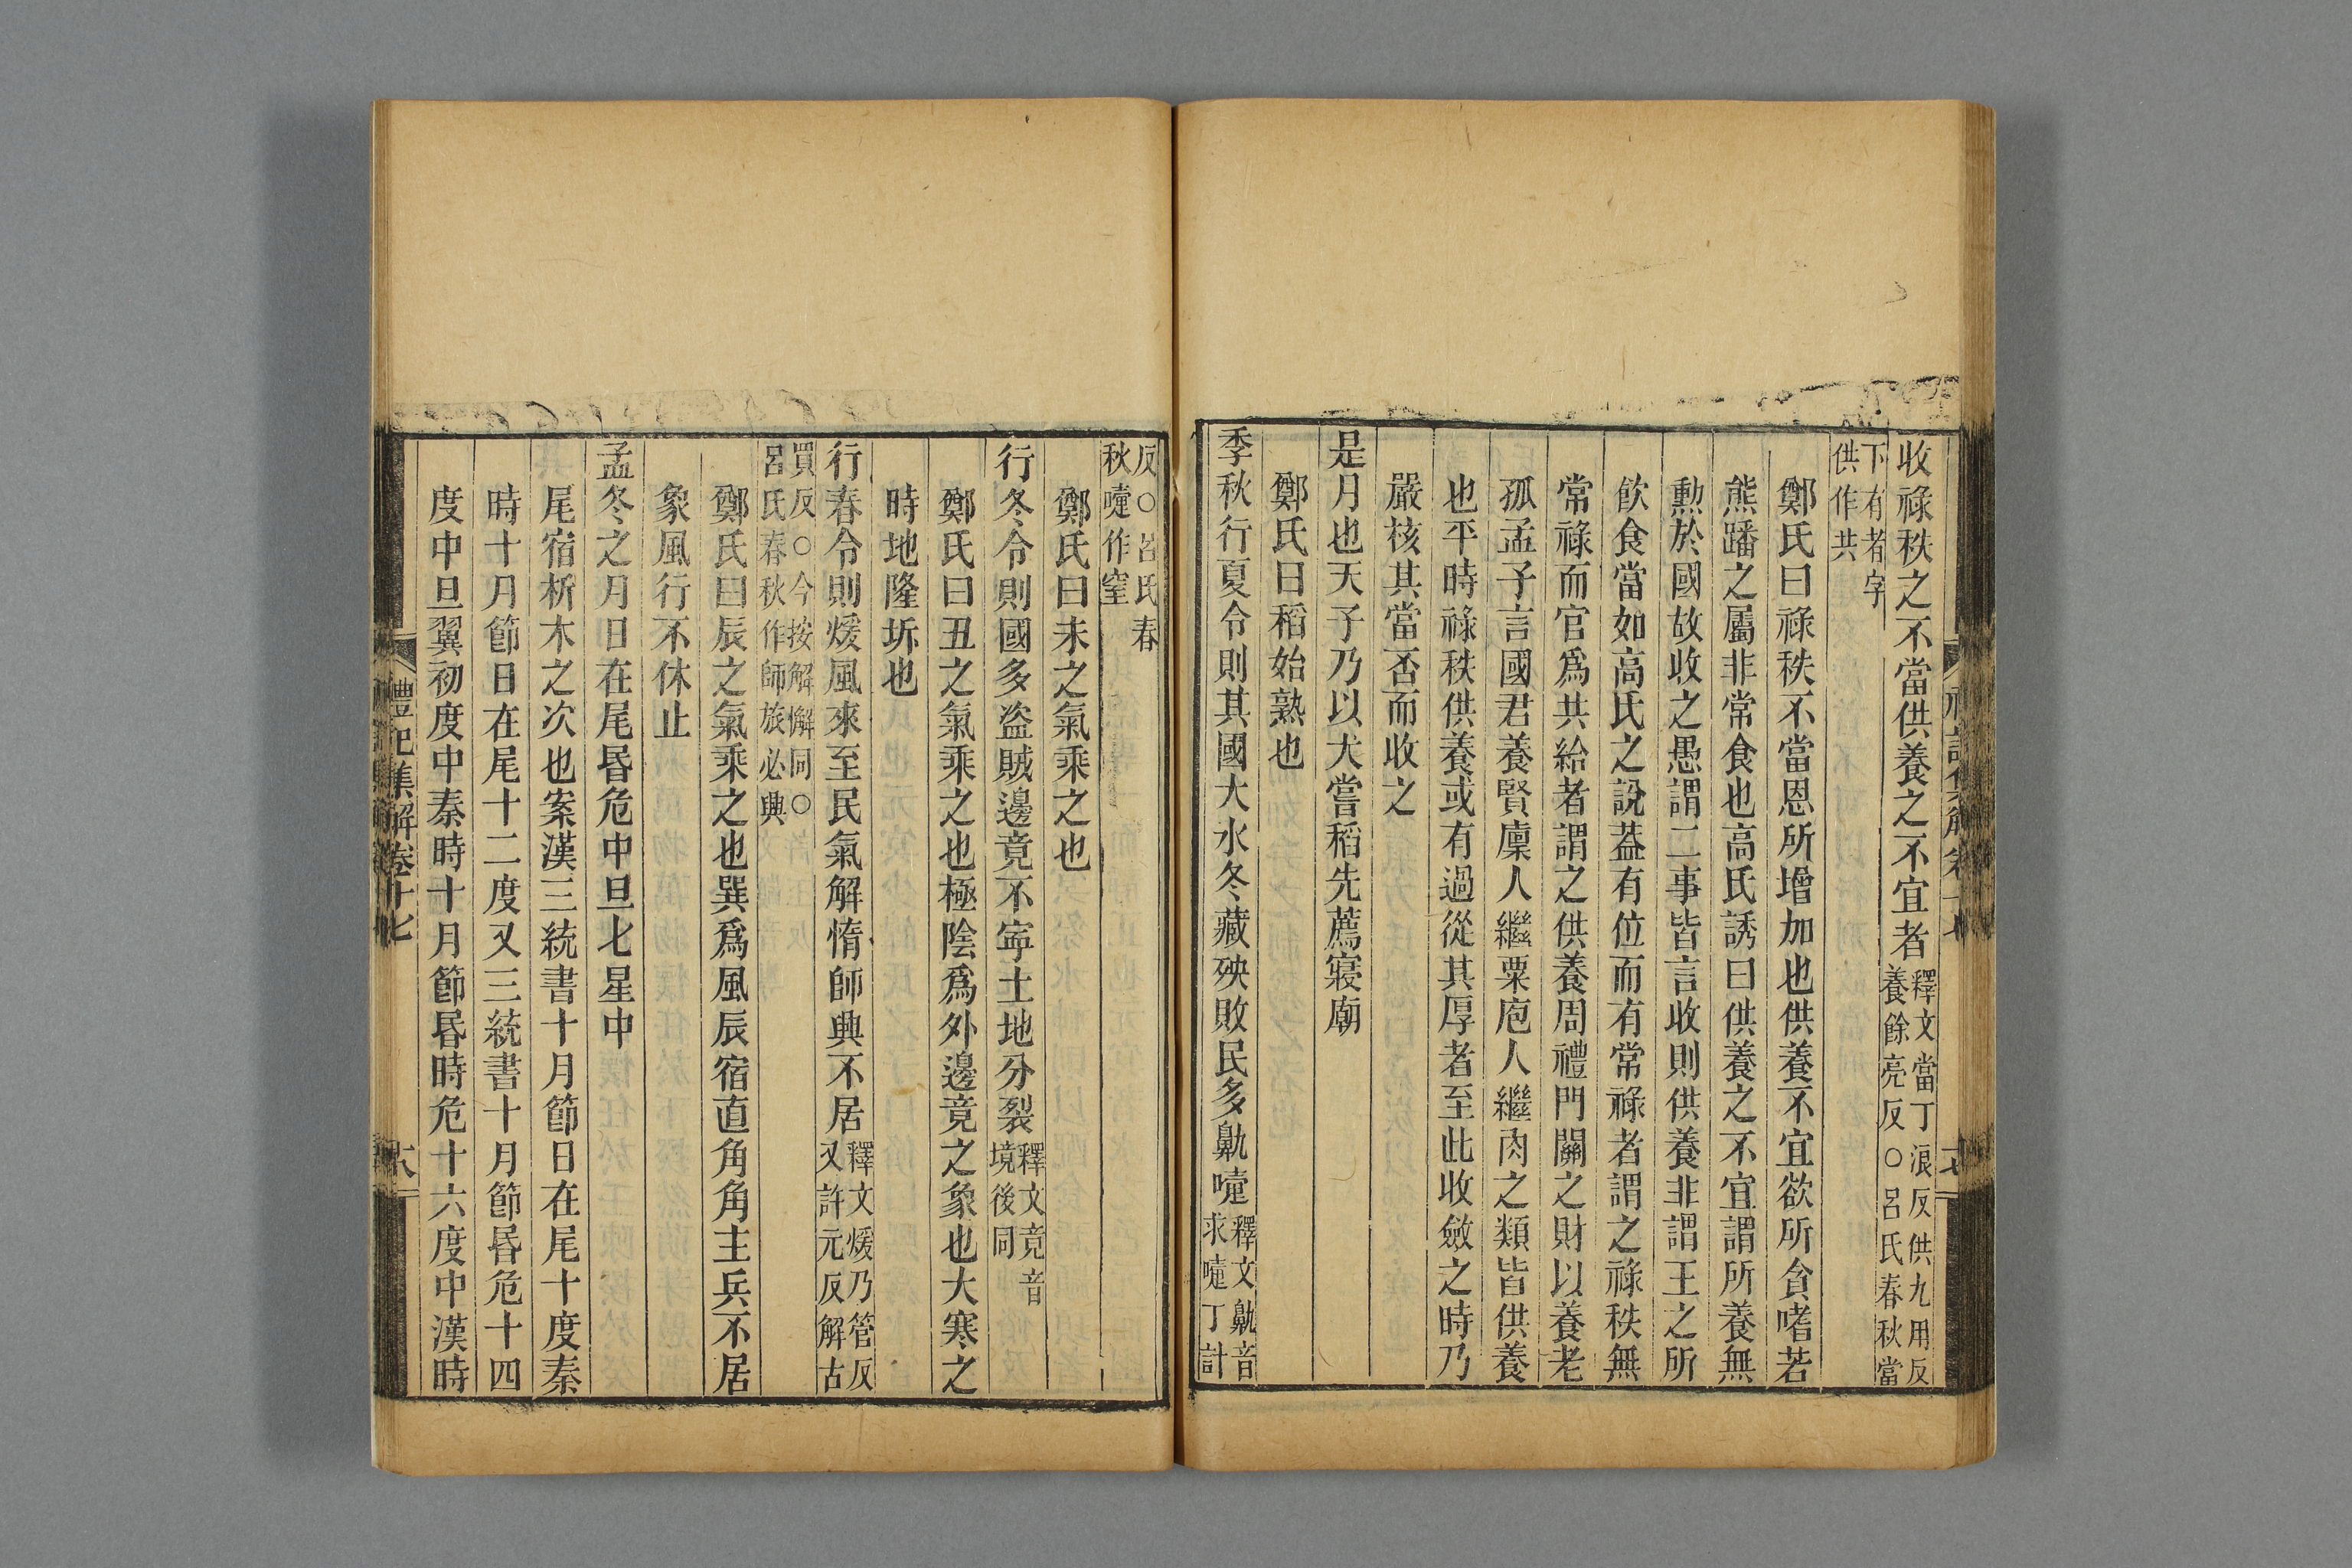 收祿秩之不當供養之不宜者釋文當丁浪反供九用反
養餘亮反○呂氏春秋當
下有者字
供作共
鄭氏曰祿秩不當恩所增加也供養不宜欲所貪嗜若
熊蹯之屬非常食也高氏誘曰供養之不宜謂所養無
勲於國故收之愚謂二事皆言收則供養非謂王之所
飲食當如高氏之說葢有位而有常祿者謂之祿秩無
常祿而官爲共給者謂之供養周禮門關之財以養老
孤孟子言國君養賢廩人繼粟庖人繼肉之類皆供養
也平時祿秩供養或有過從其厚者至此收斂之時乃
嚴核其當否而收之
是月也天子乃以犬嘗稻先薦寢廟
鄭氏曰稻始熟也
季秋行夏令則其國大水冬藏殃敗民多鼽嚏釋文鼽音
求嚏丁計
反○呂氏春
秋嚏作窒
鄭氏曰未之氣乘之也
行冬令則國多盜賊邊竟不寧土地分裂釋文竟音
境後同
鄭氏曰丑之氣乘之也極陰爲外邊竟之象也大寒之
時地隆坼也
行春令則煖風來至民氣解惰師興不居釋文煖乃管反
又許元反解古
買反○今按解懈同○
呂氏春秋作師旅必興
鄭氏曰辰之氣乘之也巽爲風辰宿直角角主兵不居
象風行不休止
孟冬之月日在尾昏危中旦七星中
尾宿析木之次也案漢三統書十月節日在尾十度秦
時十月節日在尾十二度又三統書十月節昏危十四
度中旦翼初度中秦時十月節昏時危十六度中漢時
禮記集解卷十七